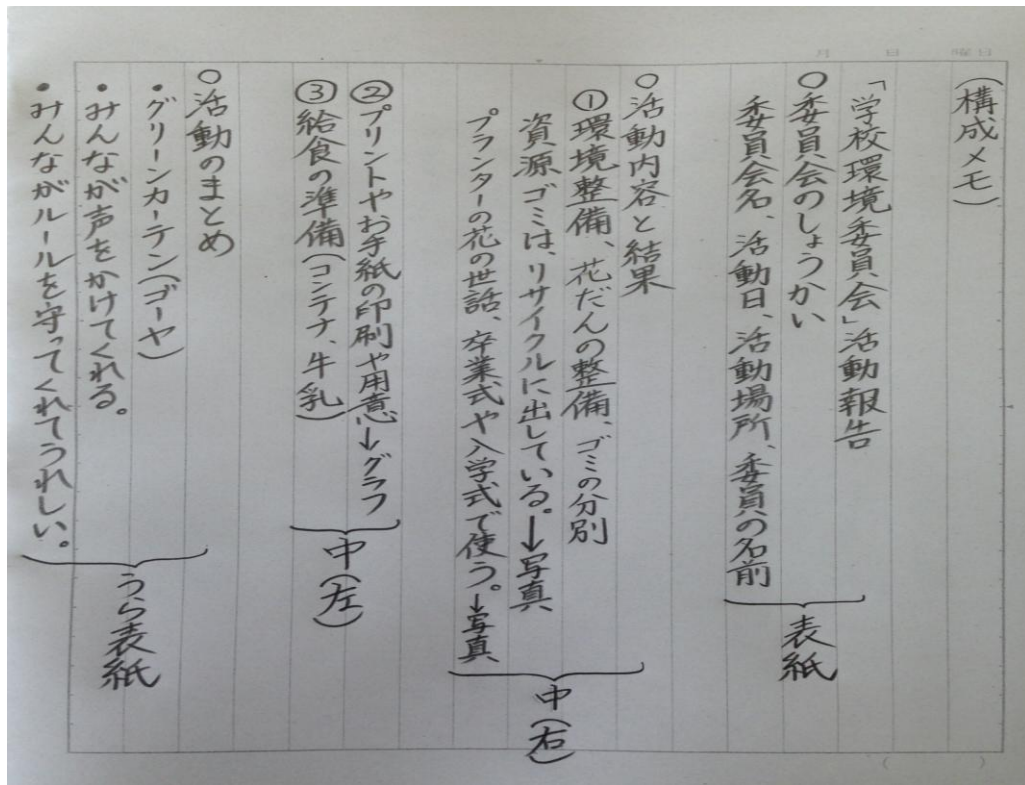 月 日 曜日
(構成メモ)
「学校環境委員会」活動報告
○委員会のしょうかい
委員会名、活動日、活動場所、委員の名前
表紙
○活動内容と結果
①環境整備、花だんの整備、ゴミの分別
資源ゴミは、リサイクルに出している。→写真
プランターの花の世話、卒業式や入学式で使う。→写真
中(右)
②プリントやお手紙の印刷や用意→グラフ
③給食の準備(コンテナ、牛乳)
中(左)
○活動のまとめ
・グリーンカーテン(ゴーヤ)
・みんなが声をかけてくれる。
・みんながルールを守ってくれてうれしい。
うら表紙
( )